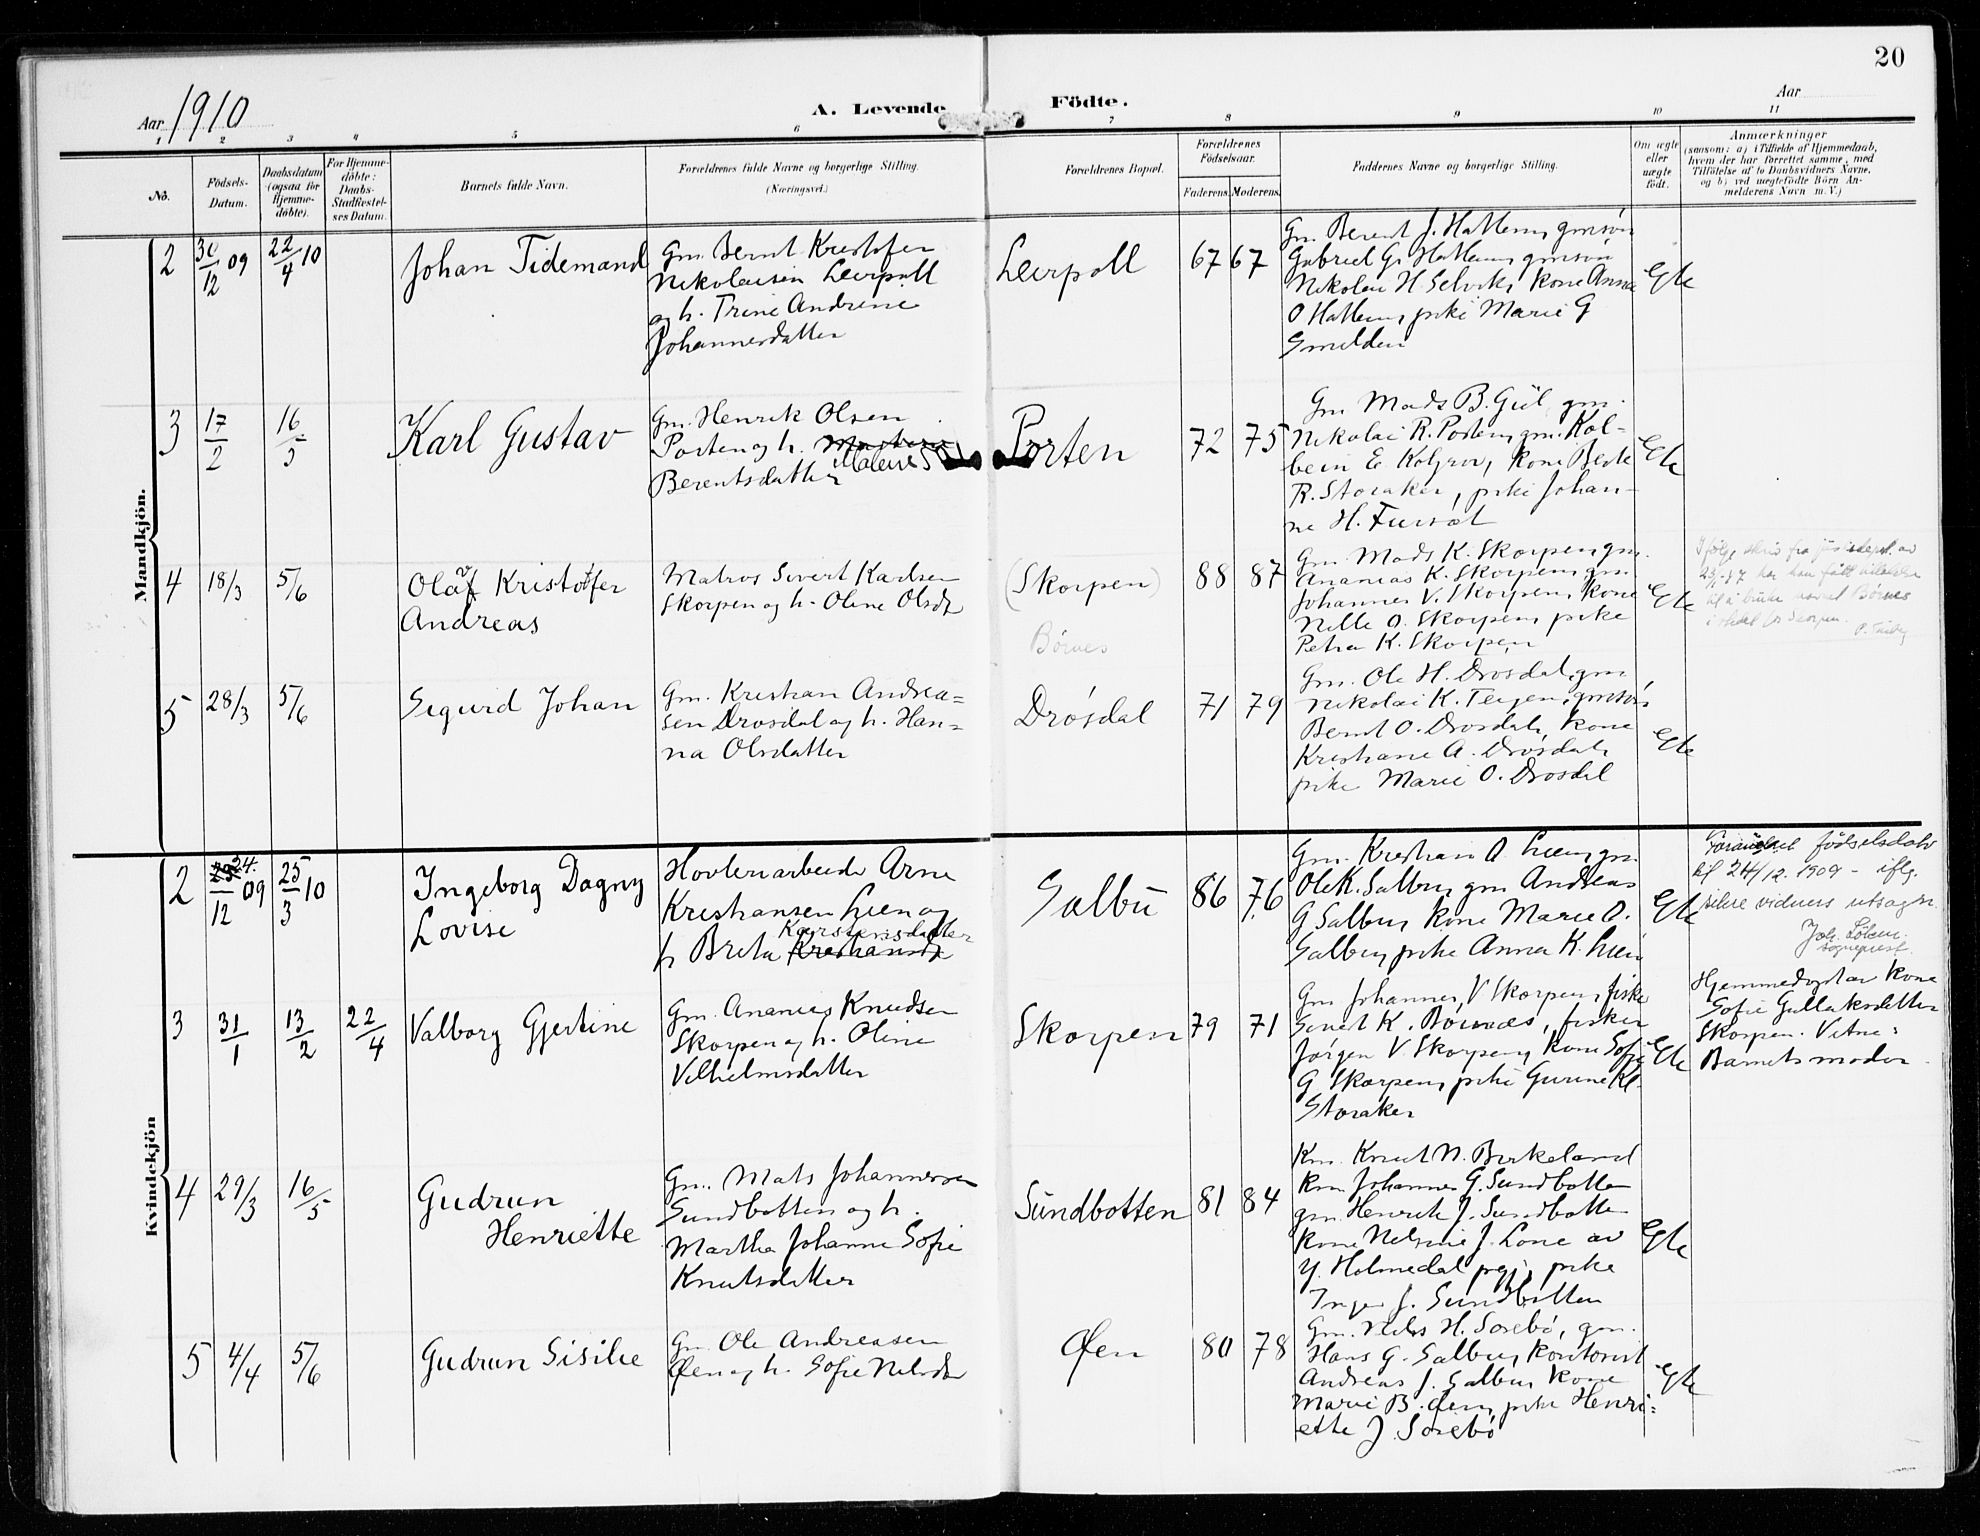 20
Aar 1910
A. Levende Födte.
Aar
1 2 3 4 5 6 7 8 9 10 11
No.
Födsels-
Datum.
Daabsdatum
(ogsaa for
Hjemme-
döbte).
For Hjemme-
döbte:
Daabs-
Stadfæstel-
ses Datum.
Barnets fulde Navn.
Forældrenes fulde Navne og borgerlige Stilling.
(Næringsvei.)
Forældrenes Bopæl.
Forældrenes
Födselsaar.
Faderens. Moderens.
Faddernes Navne og borgerlige Stilling.
Om ægte
eller
uægte
födt.
Anmærkninger
(saasom: a) i Tilfælde af Hjemmedaab,
hvem der har forrettet samme, med
Tilföielse af to Daabsvidners Navne,
og b) ved uægtefödte Börn An-
melderens Navn m. V.)
Mandkjön.
2
30/12 09
22/4 10
Johan Tidemand
Gm. Bernt Kristofer
Nikolaisen Leirpoll
og h. Trine Andrine
Johannesdatter
Leirpoll
67 67
Gm Berent J. Hatlem, gmsön
Gabriel G. Hatlem, gmsön
Nikolai H. Selvik, kone Anna
O Hatlem, pike Marie G
Smelden
Egte
3
17/2
16/5
Karl Gustav
Gm. Henrik Olsen
Porten og h.
Malene
Berentsdatter
Porten
72 75
Gm Mads B. Gjil, gm.
Nikolai R. Porten, gm. Kol-
bein E. Kolgrov, kone Berte
R. Storaker, pike Johan-
ne H. Furset
Egte
4
18/3
5/6
Olav Kristoffer
Andreas
Matros Sivert Karlsen
Skorpen og h. Oline Olsdr
(Skorpen)
Børnes
88 87
Gm. Mads K. Skorpen, gm.
Ananias K. Skorpen, gm
Johannes V. Skorpen, kone
Nille O. Skorpen, pike
Petra K. Skorpen
Egte
Ifølge skriv fra justisdept. av
har han fått tillatelse
til å bruke navnet Børnes
i stedet for Skorpen.
5
28/3
5/6
Sigurd Johan
Gm. Kristian Andrea-
sen Drosdal og h. Han-
na Olsdatter
Drösdal
71 79
Gm. Ole H. Drosdal, gm
Nikolai K. Teigen, gmsön
Bernt O. Drosdal, kone
Kristiane A. Drosdal,
pike Marie O. Drosdal
Egte
Kvindekjön
2
24.
/12 09
25/3 10
Ingeborg Dagny
Lovise
Hovlenarbeide Arne
Kristiansen Lien og
Karstensdatter
h Brita Kristiansdr
Salbu
86 76
Gm. Kristian A Lien, gm.
Ole K. Salbu, gm Andreas
G Salbu, kone Marie O.
Salbu, pike Anna K. Lien
Egte
Forandret fødselsdato
til 24/12. 1909 - iflg.
sikre vidners utsagn.
Joh.
sogneprest.
3
31/1
13/2
22/4
Valborg Gjertine
Gm. Ananias Knudsen
Skorpen og h. Oline
Vilhelmsdatter
Skorpen
79 71
Gm Johannes V Skorpen, fisker
Sivert K. Børnes, fisker
Jørgen V. Skorpen, kone Sofie
G Skorpen, pike Gurine Kl.
Storaker
Egte
Hjemmedøpt av kone
Sofie Gullaksdatter
Skorpen. Vitne:
Barnets moder.
4
29/3
16/5
Gudrun
Henriette
Gm. Mats Johannesen
Sundbotten og h.
Martha Johanne Sofie
Knutsdatter
Sundbotten
81 84
Km. Knut N. Birkeland
Km Johannes G. Sundbotten
gm. Henrik J. Sundbotten
kone Nelsine J. Lone av
Y. Holmedal prgj, pike
Inga J. Sundbotten
Egte
5
4/4
5/6
Gudrun Sisilie
Gm Ole Andreasen
Øen og h. Sofie Nilsdr
Øen
80 78
Gm. Nils H. Sørebö, gm.
Hans G. Salbu, kontorist
Andreas J. Salbu, kone
Marie B. Øen, pike Henri-
ette J. Sørebö
Egte